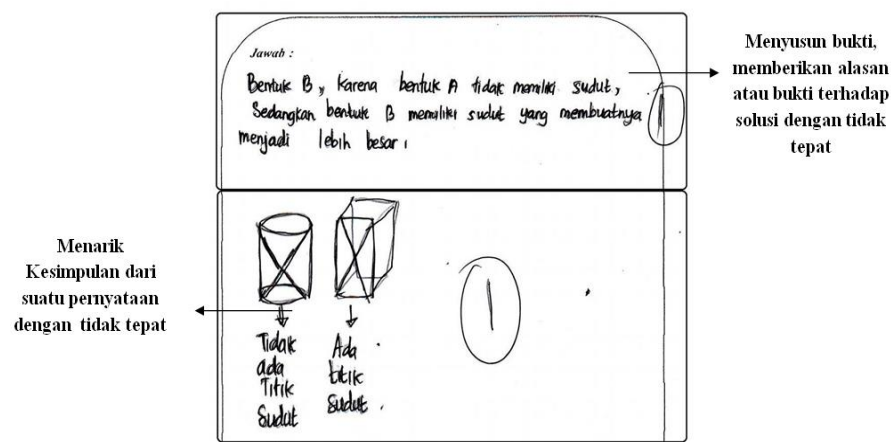 Jawab :
Bentuk B, Karena bentuk A tidak memiliki sudut,
Sedangkan bentuk B memiliki sudut yang membuatnya
menjadi lebih besar.
1
Menyusun bukti,
memberikan alasan
atau bukti terhadap
solusi dengan tidak
tepat
Menarik
Kesimpulan dari
suatu pernyataan
dengan tidak tepat
Tidak
ada
Titik
Sudut
Ada
titik
Sudut.
1